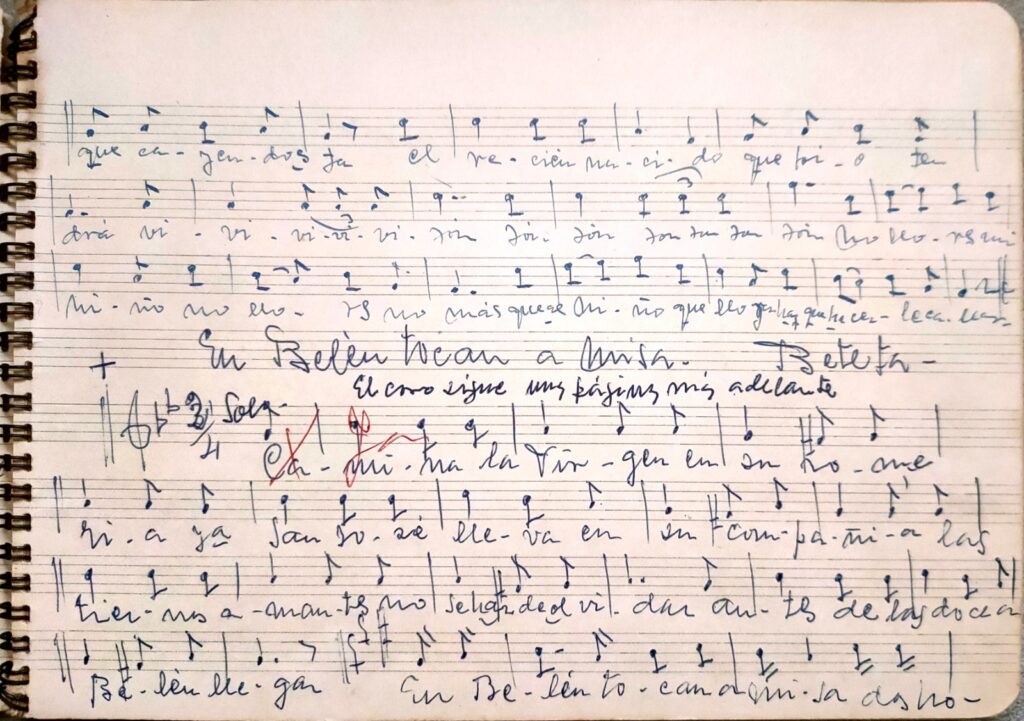 que ca-yen-dos ta el re-cién na-ci-do que fri-o ten
drá vi-vi-vi-vi-vi-tón tón-tón ton ton ton tón no llo-res mi
ni-ño no llo-res no más que ese ni-ño que llo
En Belén tocan a misa. Beteta-
El coro sigue una página más adelante
3/4 Solo-
Ca-mi-na la Vir-gen en su ro-me
ri-a ya San Jo-sé lle-va en su com-pa-ñi-a las
tier-nos a-man-tes no se han de ol vi-dar an-tes de las doce a
Be-lén lle-gar En Be-lén to-can a mi-sa dos ho-